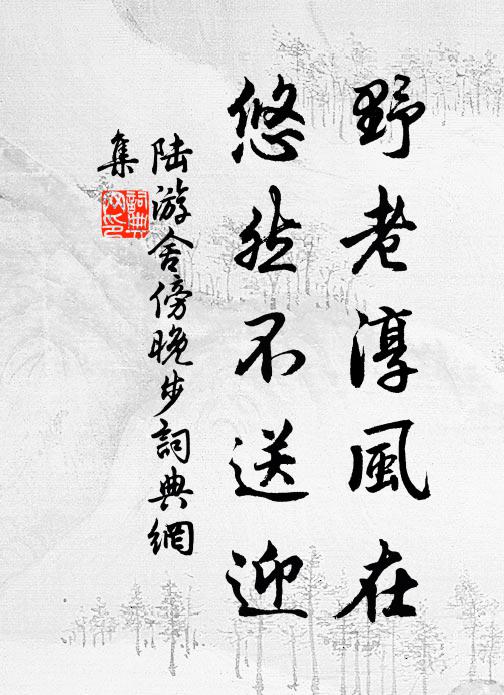 野老淳風在
悠然不送迎
陆游舍傍晚步詞典網
集
詞典网印